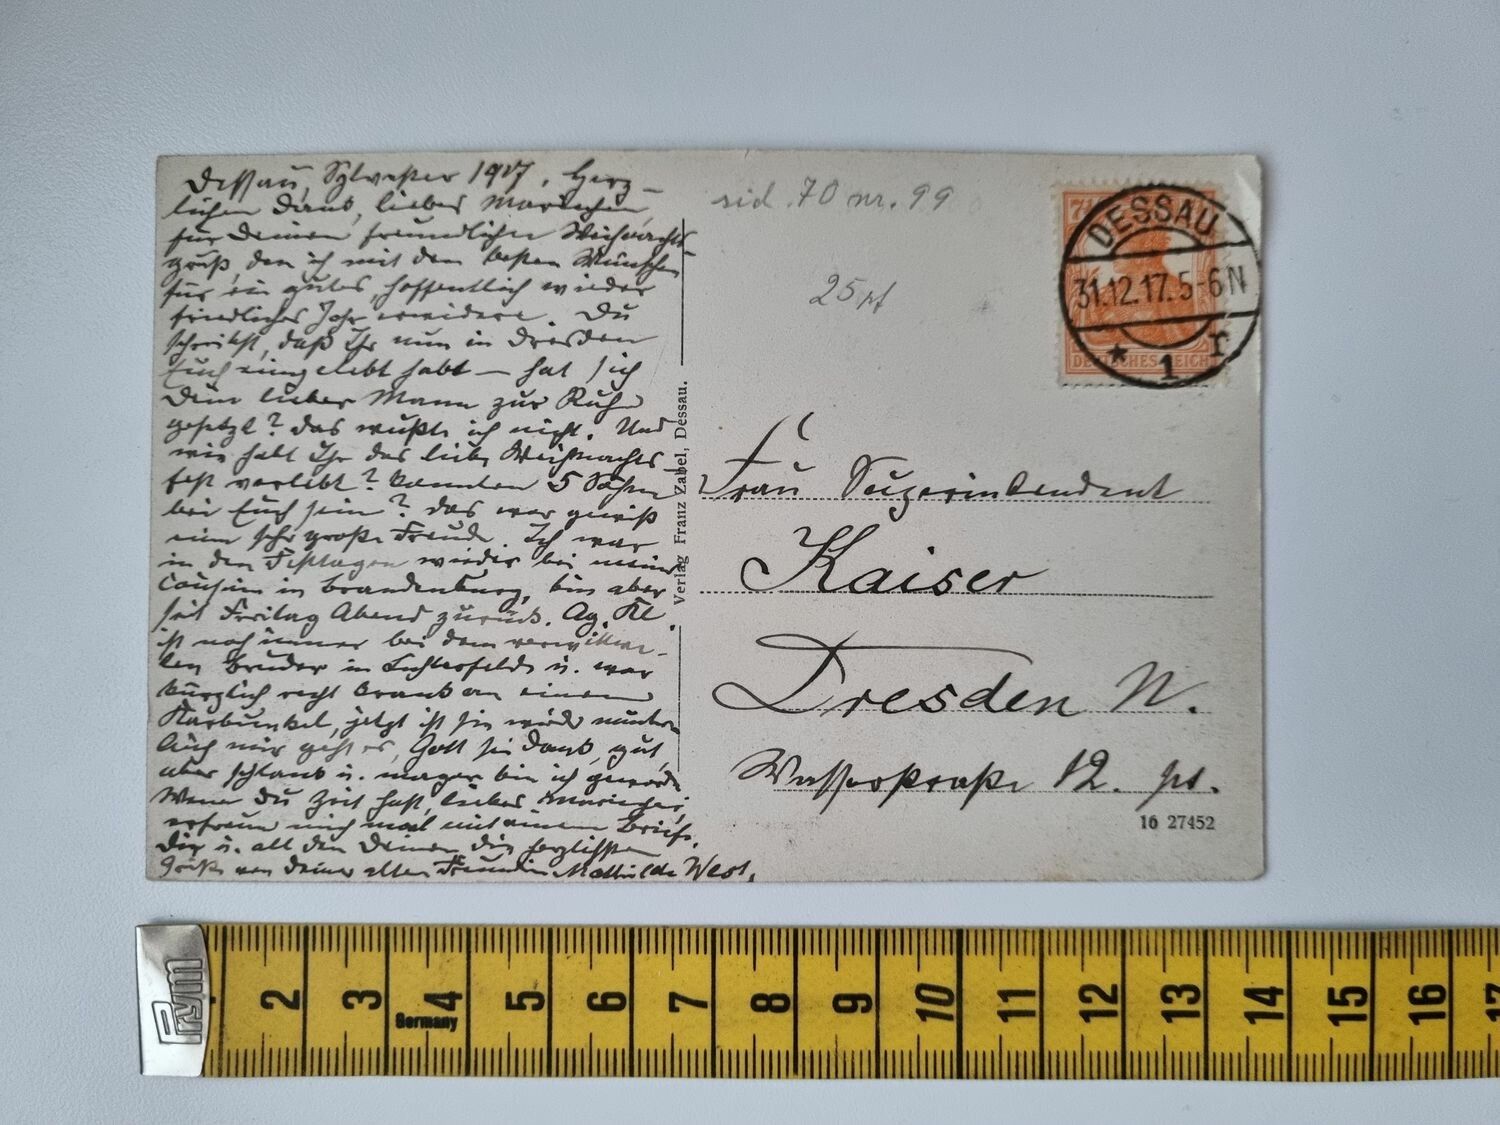 Dessau, Sylvester 1917. Herz-
lichen Dank, liebes Mariechen,
für Deinen freundlichen Weihnachts-
gruß, den ich mit den besten Wünschen
für ein gutes, hoffentlich wieder
friedliches Jahr erwidere. Du
schreibst, daß Ihr nun in Dresden
Euch eingelebt habt – hat sich
Dein lieber Mann zur Ruhe
gesetzt? Das wußte ich nicht. Und
wie habt Ihr das liebe Weihnachts-
fest verlebt? Konnten 5 Söhne
bei Euch sein? Das war gewiß
eine sehr große Freude. Ich war
in den Festtagen wieder bei meiner
Cousine in Brandenburg, bin aber
seit Freitag Abend zurück. Ag. Kl.
ist noch immer bei dem verwittwe-
ten Bruder in Lichterfelde u. war
kürzlich recht krank an einem
Karbunkel, jetzt ist sie wieder munter.
Auch mir geht es, Gott sei Dank, gut,
aber schlank u. mager bin ich geworden.
Wenn Du Zeit hast, liebes Mariechen,
erfreue mich mal mit einem Briefe.
Dir u. all den Deinen die herzlichsten
Grüße von Deiner alten Freundin Mathilde West.
Verlag Franz Zabel, Dessau.
sid. 70 nr. 99
25 pf
7½
DEUTSCHES REICH
DESSAU
31.12.17. 5-6N
* 1 r
Frau Superintendent
Kaiser
Dresden N.
Wasserstraße 12. pt.
16 27452
Prym
2 3 4 5 6 7 8 9 10 11 12 13 14 15 16 17
Germany